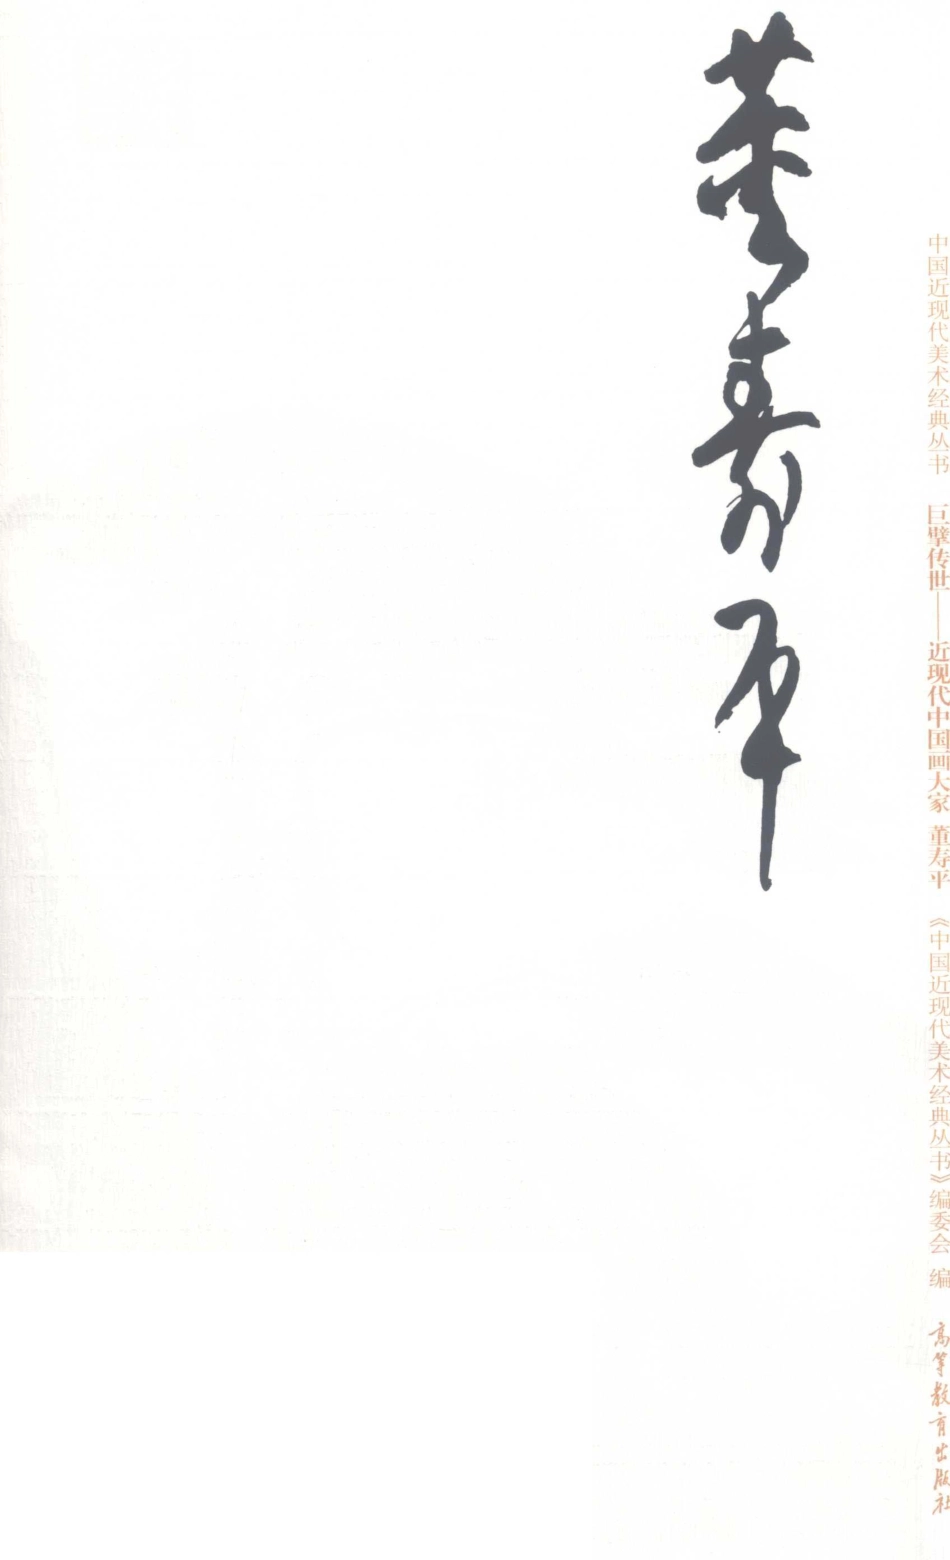 董寿平
中国近现代美术经典丛书 巨擘传世——近现代中国画大家 董寿平 《中国近现代美术经典丛书》编委会 编 高等教育出版社